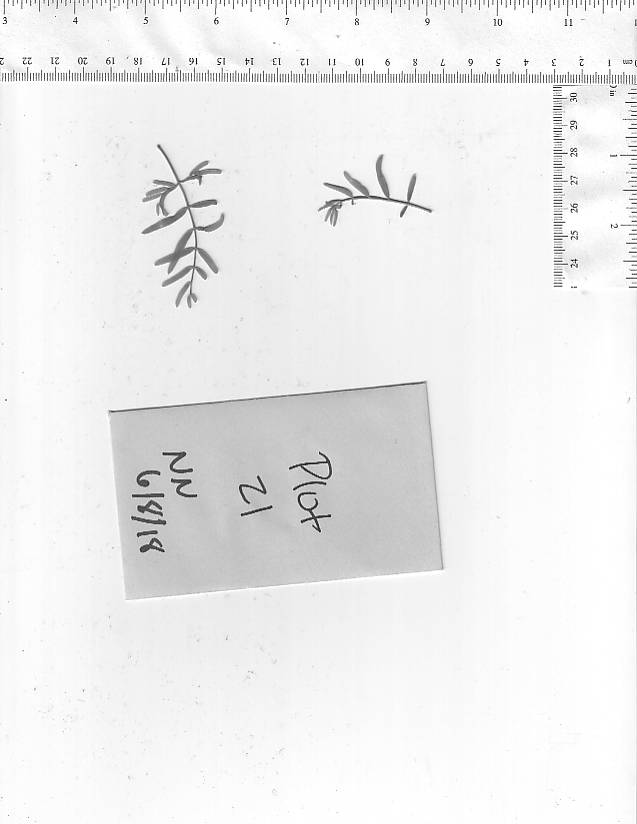 3 4 5 6 7 8 9 10 11
2 22 21 20 19 18 17 16 15 14 13 12 11 10 9 8 7 6 5 4 3 2 1 cm
30
29
28
27
26
25
24
in
1
2
Plot
21
NN
6/8/18